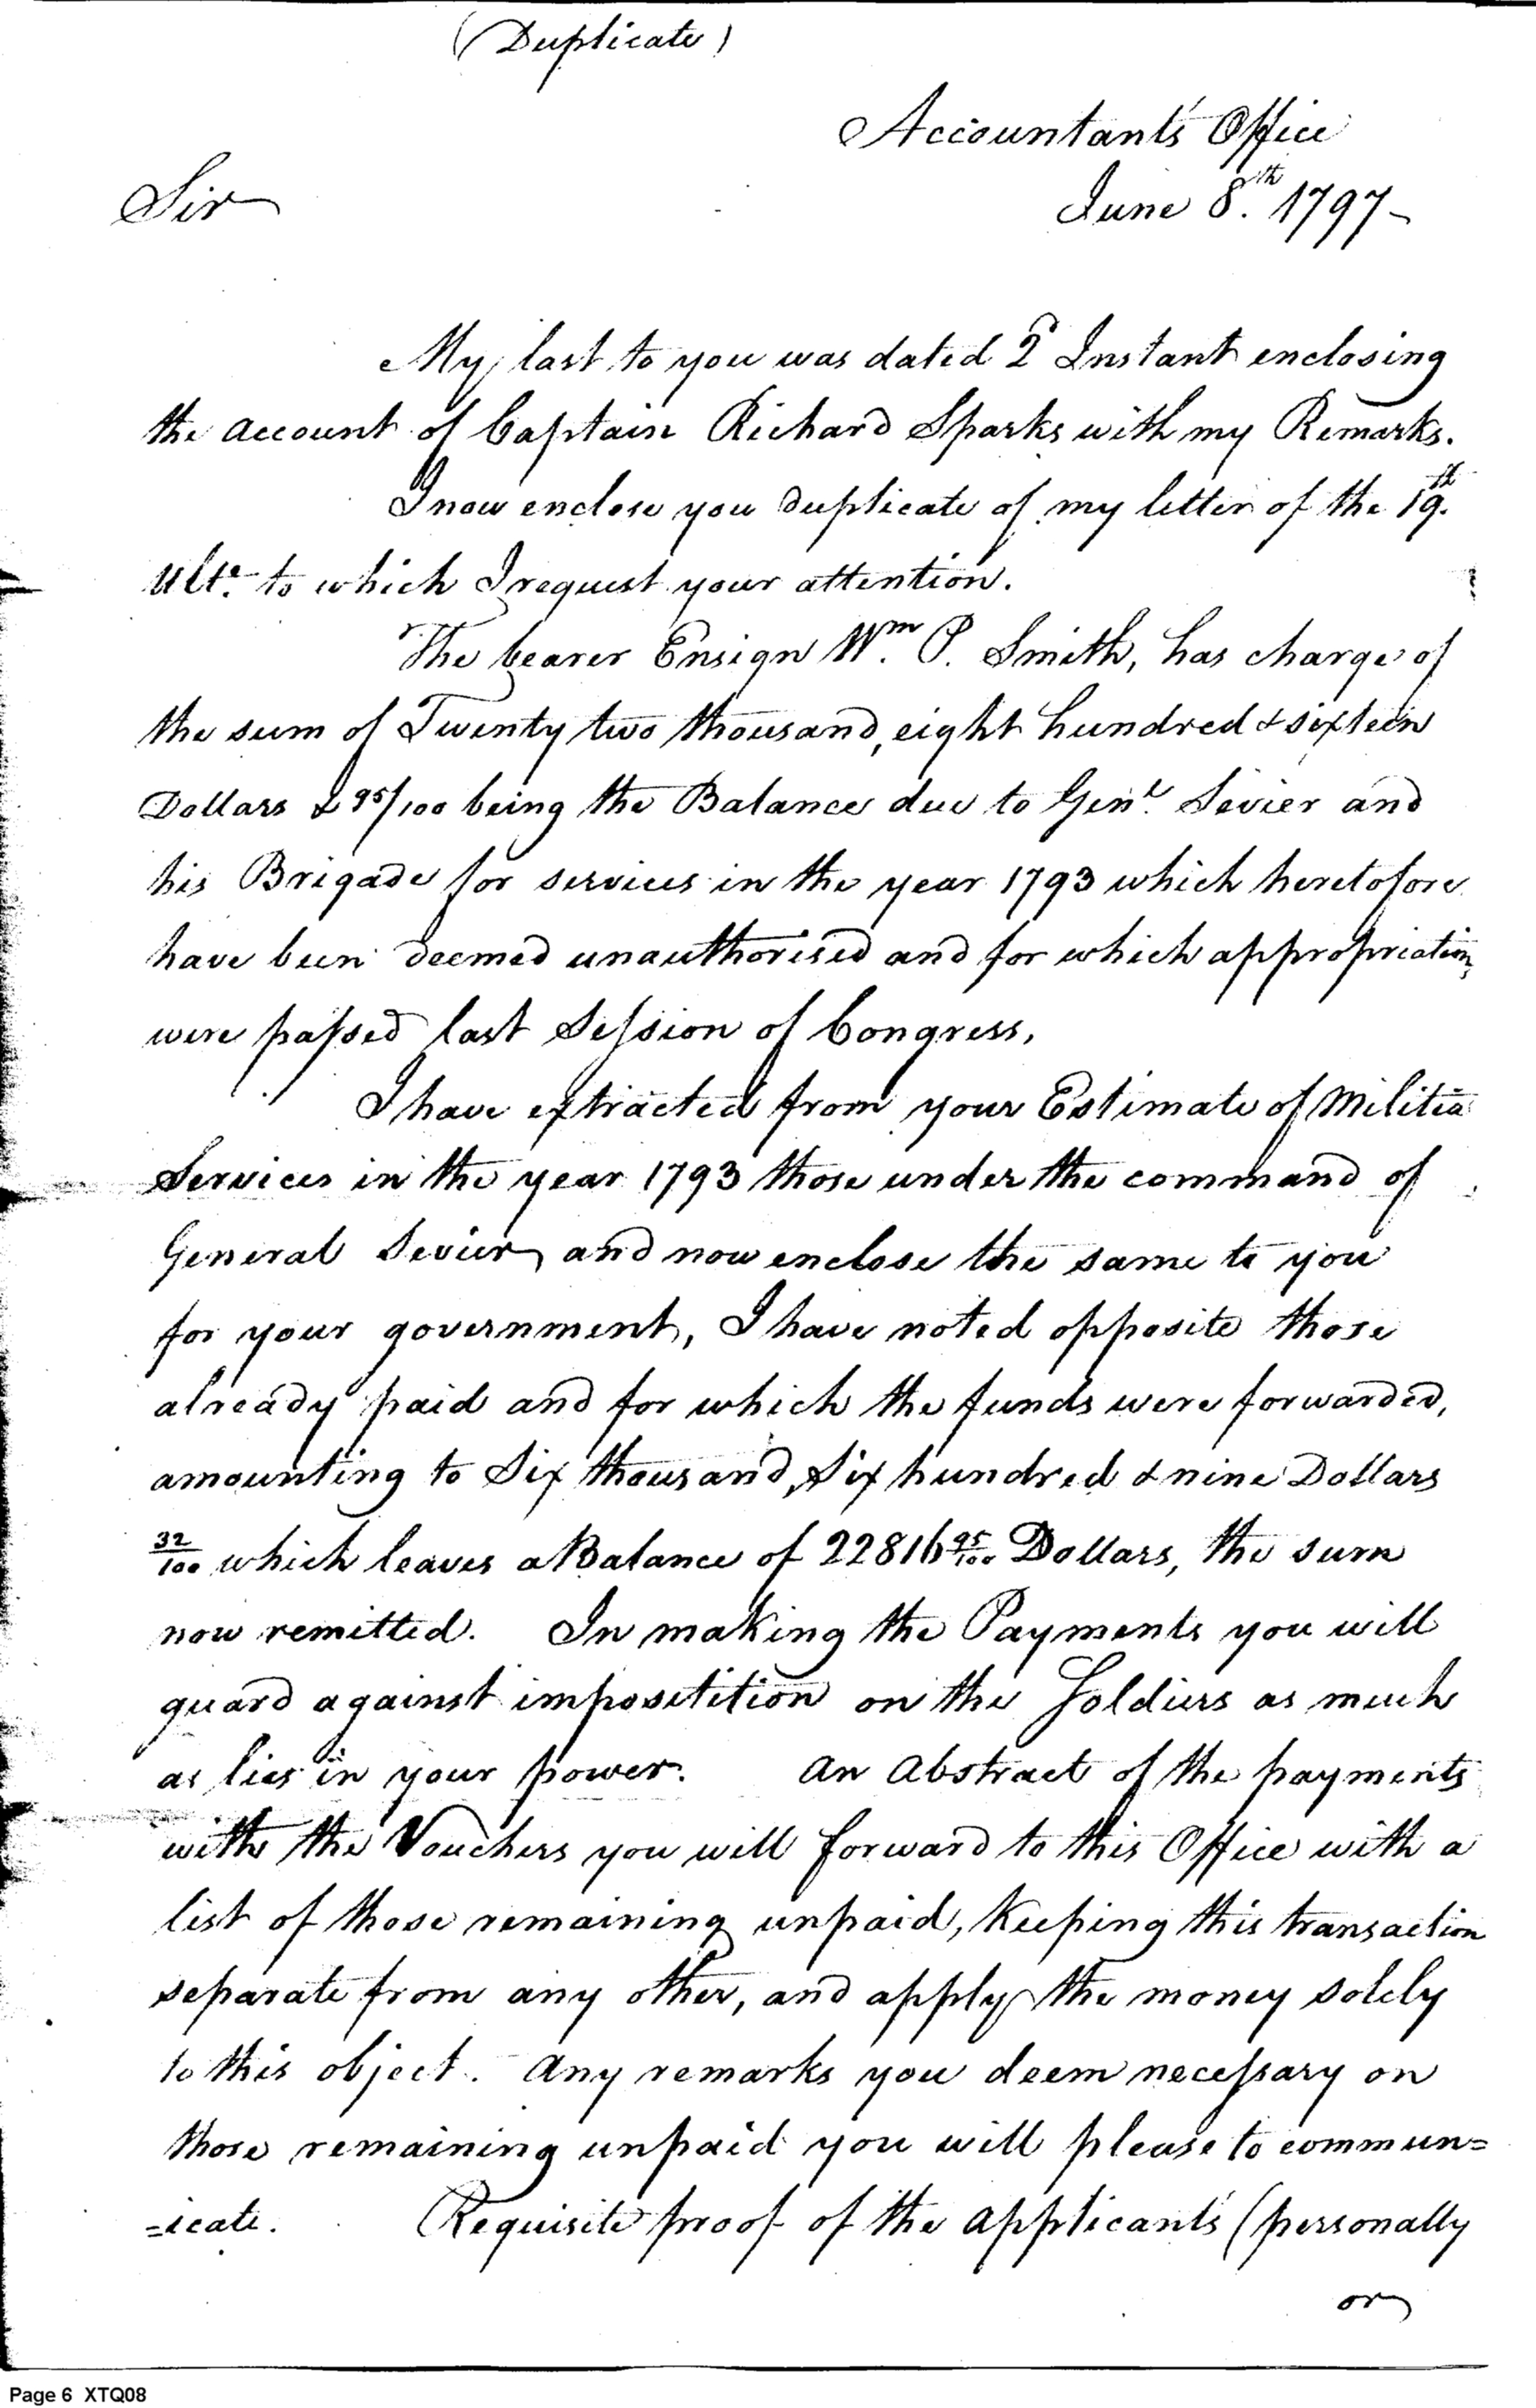 (Duplicate)
Accountant's Office
Sir
June 8th. 1797-
My last to you was dated 2d Instant enclosing
the account of Captain Richard Sparks with my Remarks.
I now enclose you duplicate of my letter of the 19th.
Ulto. to which I request your attention.
The bearer Ensign Wm. P. Smith, has charge of
the sum of Twenty two thousand, eight hundred & sixteen
Dollars & 95/100 being the Balance due to Genl. Sevier and
his Brigade for services in the year 1793 which heretofore
have been deemed unauthorised and for which appropriations
were passed last Session of Congress,
I have extracted from your Estimate of Militia
Services in the year 1793 those under the command of
General Sevier and now enclose the same to you
for your government, I have noted opposite those
already paid and for which the funds were forwarded,
amounting to Six thousand, Six hundred & nine Dollars
32/100 which leaves a Balance of 22816 95/100 Dollars, the sum
now remitted. In making the Payments you will
guard against imposetition on the Soldiers as much
as lies in your power. An Abstract of the payments
with the Vouchers you will forward to this Office with a
list of those remaining unpaid, keeping this transaction
separate from any other, and apply the money solely
to this object. Any remarks you deem necessary on
those remaining unpaid you will please to commun=
=icate. Requisite proof of the applicants (personally
or
Page 6 XTQ08